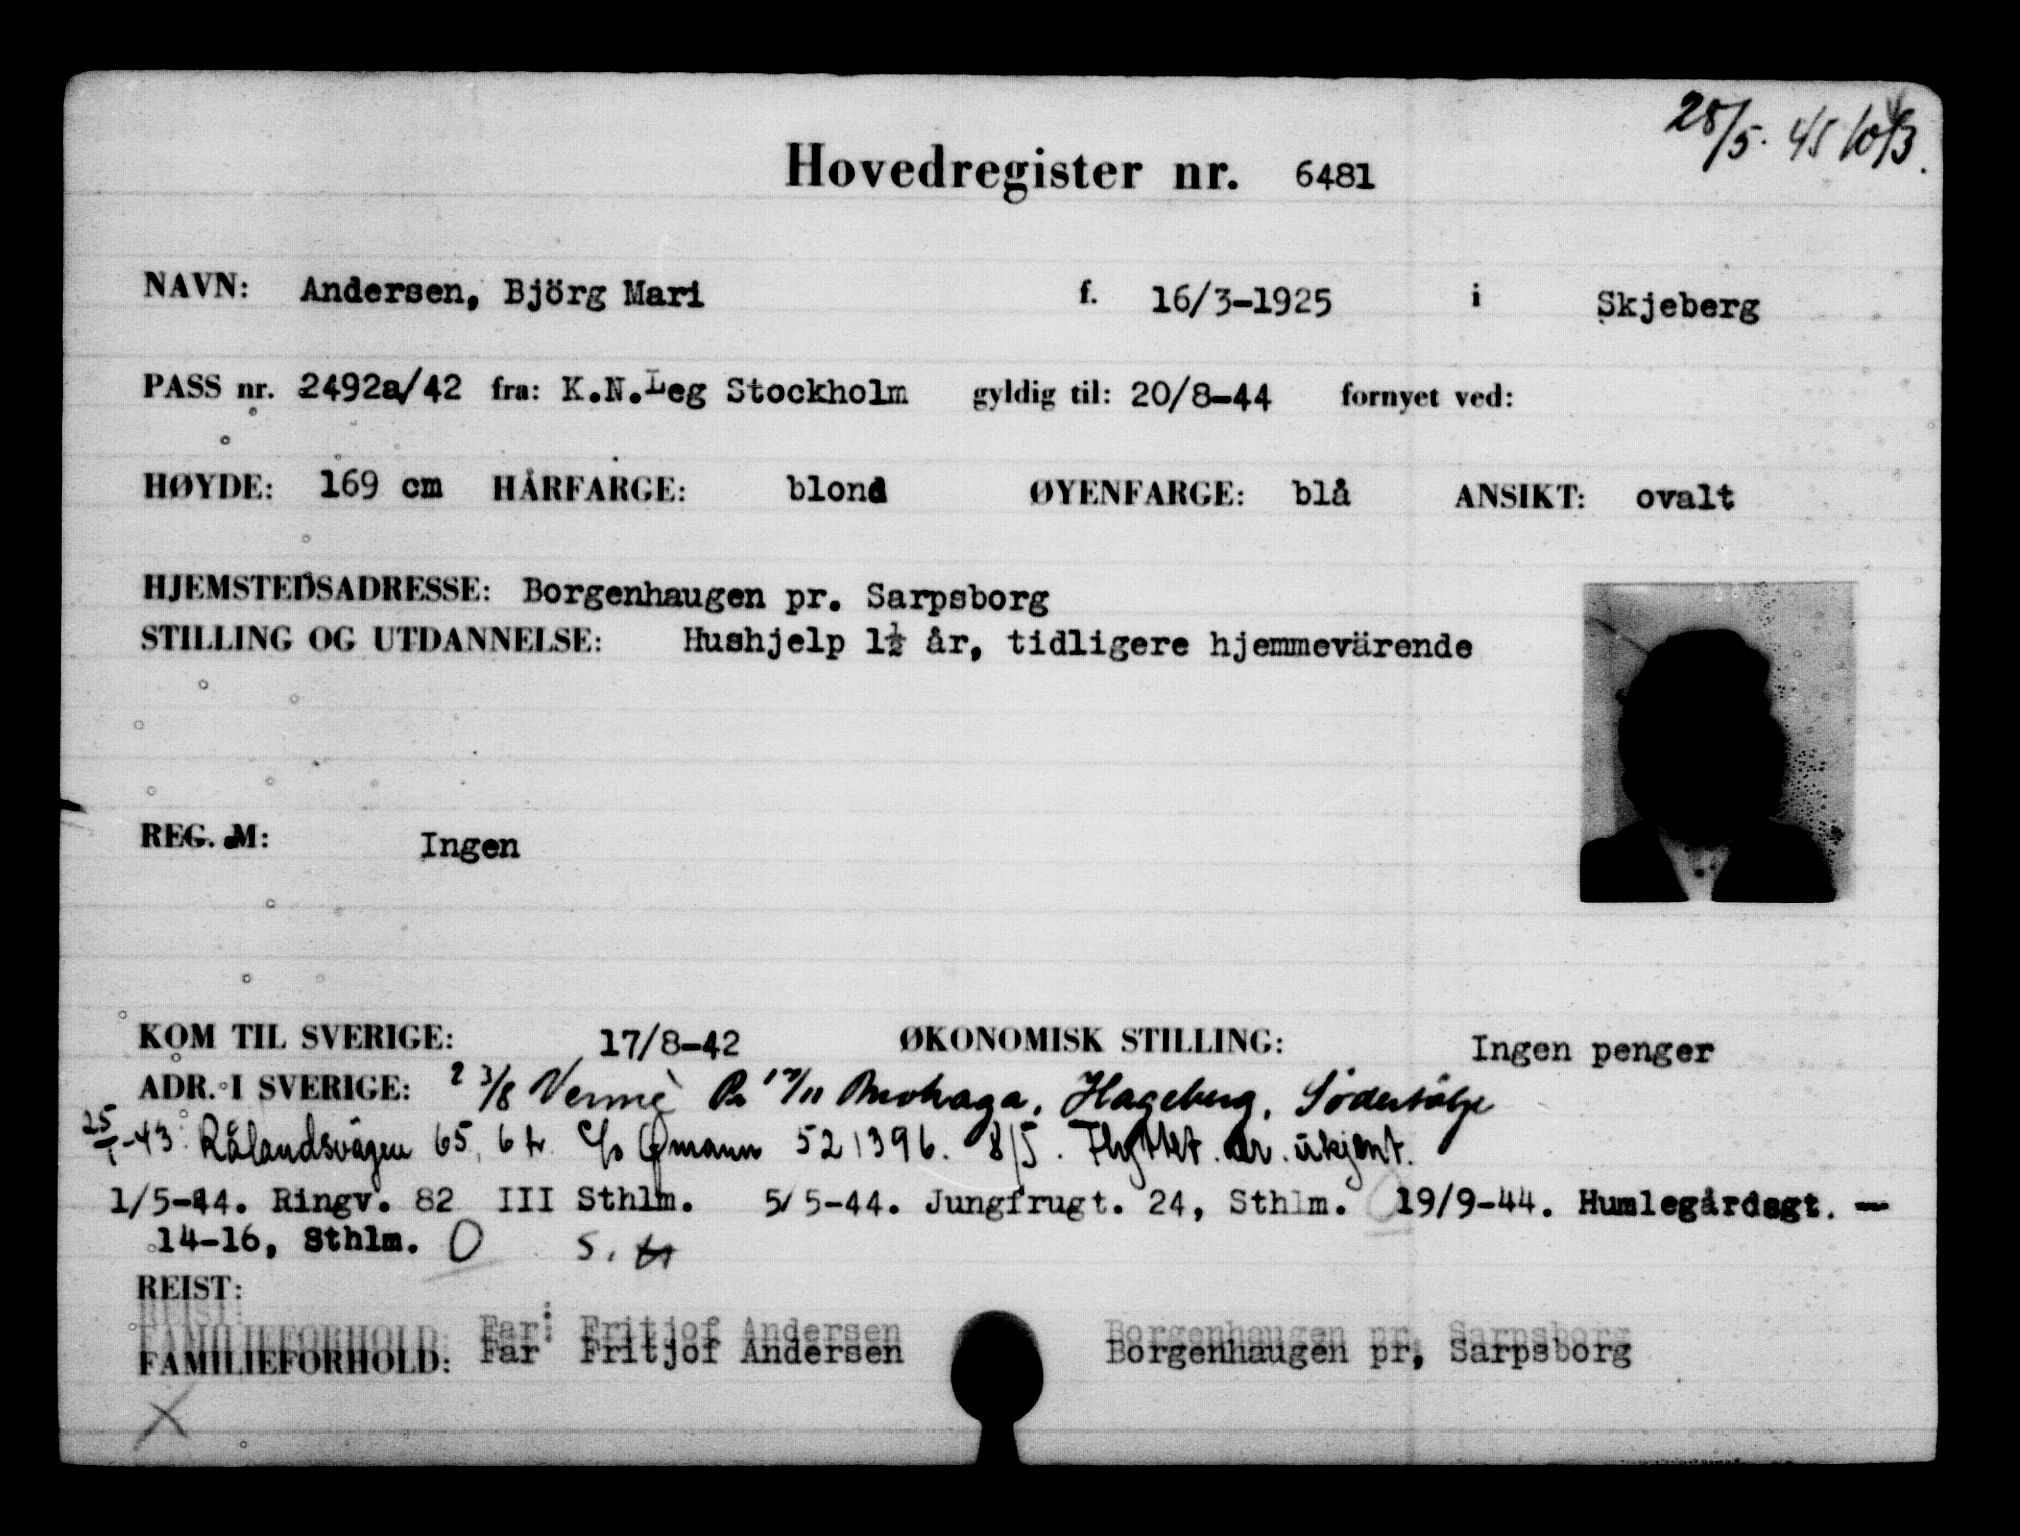 28/5. 45
Hovedregister nr. 6481
NAVN: Andersen, Björg Mari f. 16/3-1925 i Skjeberg
PASS nr. 2492a/42 fra: K.N.Leg Stockholm gyldig til: 20/8-44 fornyet ved:
HØYDE: 169 cm HÅRFARGE: blond ØYENFARGE: blå ANSIKT: ovalt
HJEMSTEDSADRESSE: Borgenhaugen pr. Sarpsborg
STILLING OG UTDANNELSE: Hushjelp 1½ år, tidligere hjemmevärende
REG. M: Ingen
KOM TIL SVERIGE: 17/8-42 ØKONOMISK STILLING: Ingen penger
ADR. I SVERIGE: 23/8 Hageberg, Södertälje
25/1-43 Rålandsvägen 65, 6 tr. c/o Qmann 521396. 8/5. Flyttet adr. ukjent.
1/5-44. Ringv. 82 III Sthlm. 5/5-44. Jungfrugt. 24, Sthlm. 19/9-44. Humlegårdsgt. —
14-16, Sthlm. O
REIST:
REIST:
FAMILIEFORHOLD: Far: Fritjof Andersen Borgenhaugen pr, Sarpsborg
FAMILIEFORHOLD: Far Fritjof Andersen Borgenhaugen pr, Sarpsborg
X